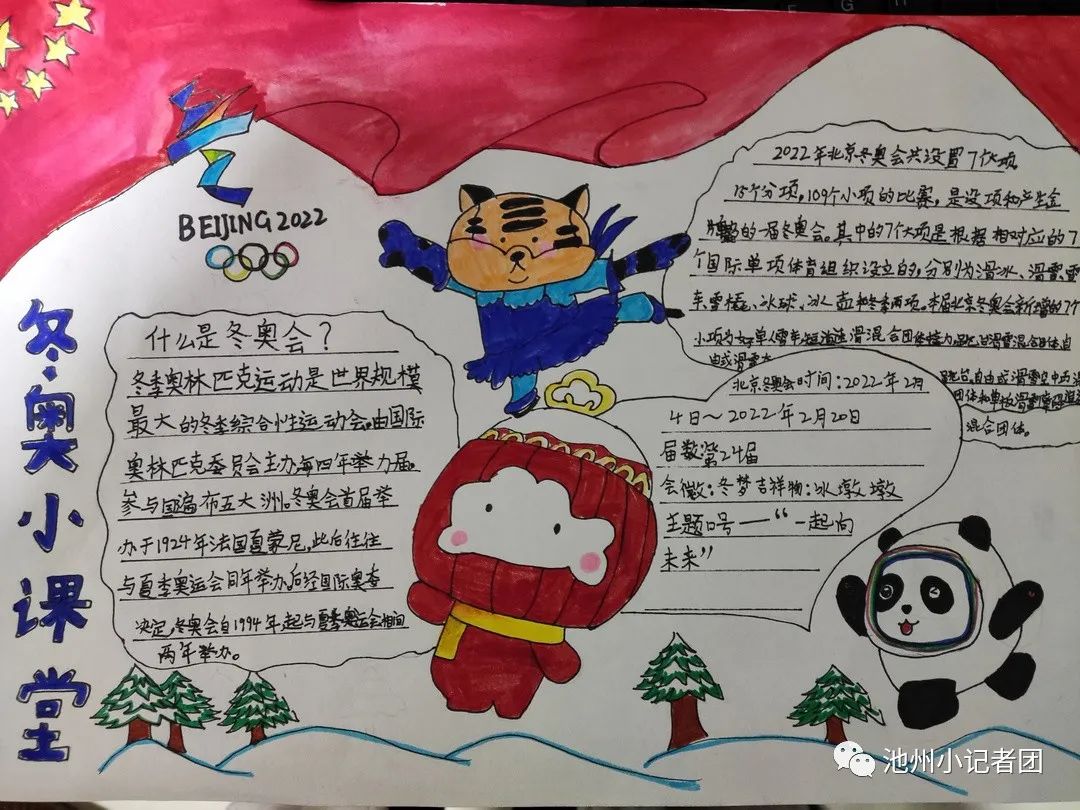 冬奥小课堂
BEIJING 2022
什么是冬奥会？
冬季奥林匹克运动是世界规模
最大的冬季综合性运动会。由国际
奥林匹克委员会主办每四年举办届。
参与国遍布五大洲。冬奥会首届举
办于1924年法国夏蒙尼，此后往往
与夏季奥运会同年举办后经国际奥委
决定，冬奥会自1994年起与夏季奥运会相间
两年举办。
2022年北京冬奥会共设置7大项
15个分项，109个小项的比赛，是设项和产生金
牌的一届冬奥会。其中的7个大项是根据相对应的7
个国际单项体育组织设立的，分别为滑冰、滑雪、雪
车、雪橇、冰球、冰壶和冬季两项。本届北京冬奥会新增的7个
小项为女子单人雪车，短道速滑混合团体接力，
由式滑雪
自由式滑雪空中
混合团体。
北京冬奥会时间：2022年2月
4日～2022年2月20日
届数第24届
会徽：冬梦吉祥物：冰墩墩
主题口号——“一起向
未来”
池州小记者团